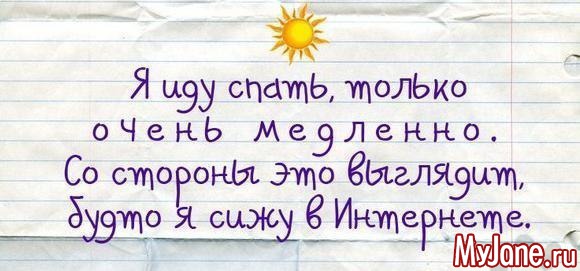 Я иду спать, только
очень медленно.
Со стороны это выглядит,
будто я сижу в Интернете.
MyJane.ru